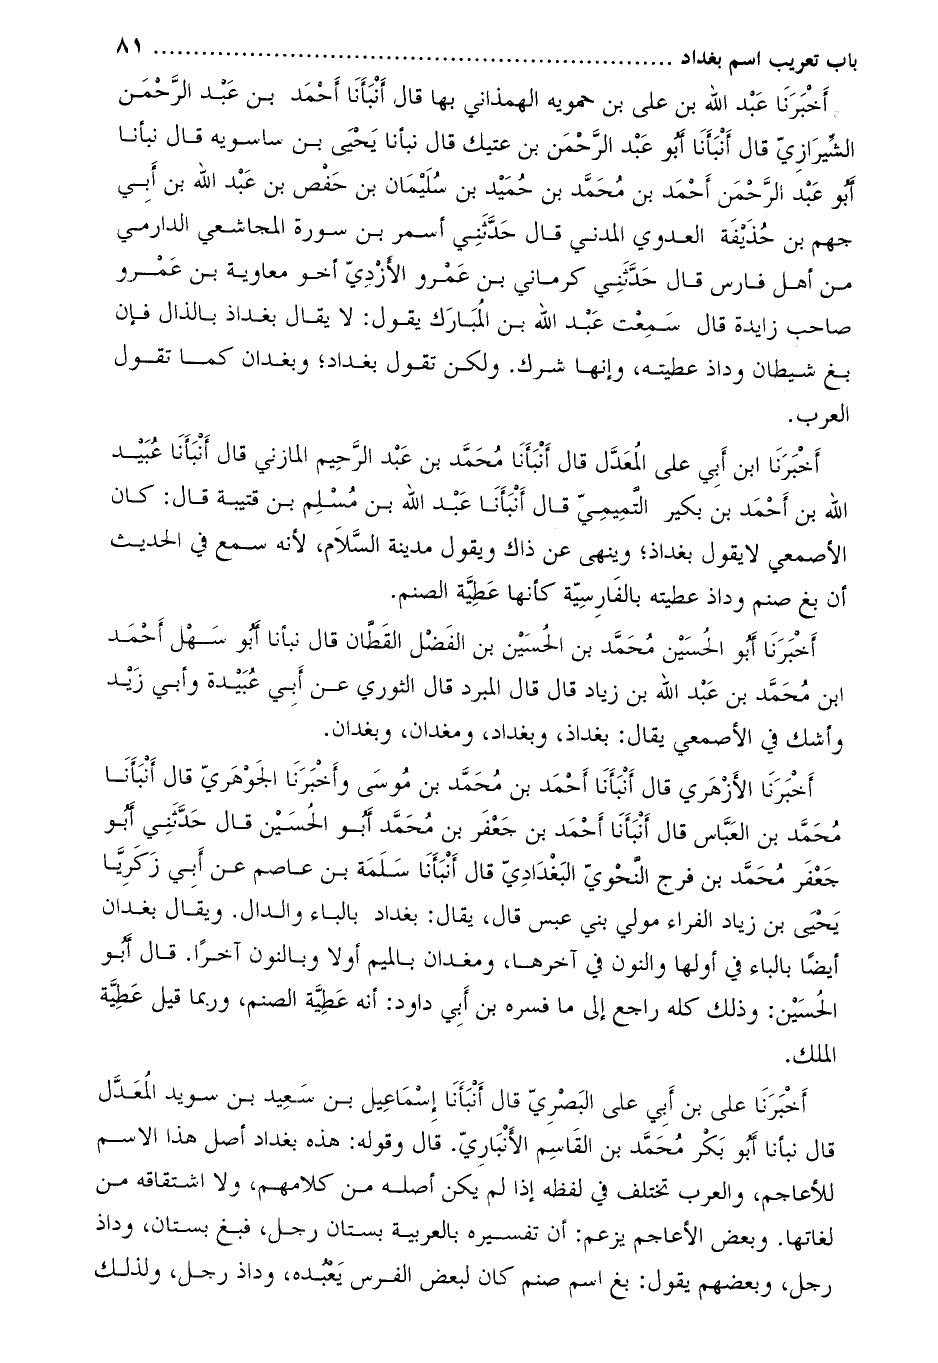 باب تعريب اسم بغداد ..................................................................... ٨١
أَخْبَرَنَا عَبْد الله بن على بن حمويه الهمذاني بها قال أَنْبَأَنَا أَحْمَد بن عَبْد الرَّحْمَن
الشِّيرَازِيّ قال أَنْبَأَنَا أَبُو عَبْد الرَّحْمَن بن عتيك قال نبأنا يَحْيَى بن ساسويه قال نبأنا
أَبُو عَبْد الرَّحْمَن أَحْمَد بن مُحَمَّد بن حُمَيْد بن سُلَيْمَان بن حَفْص بن عَبْد الله بن أَبِي
جهم بن حُذَيْفَة العدوي المدني قال حَدَّثَنِي أسمر بن سورة المجاشعي الدارمي
من أهل فارس قال حَدَّثَنِي كرماني بن عَمْرو الأَزْدِيّ أخو معاوية بن عَمْرو
صاحب زايدة قال سَمِعْت عَبْد الله بن المُبَارَك يقول: لا يقال بغداذ بالذال فإن
بغ شيطان وداذ عطيته، وإنها شرك. ولكن تقول بغداد؛ وبغدان كما تقول
العرب.
أَخْبَرَنَا ابن أَبي على المُعَدَّل قال أَنْبَأَنَا مُحَمَّد بن عَبْد الرَّحِيم المازني قال أَنْبَأَنَا عُبَيْد
الله بن أَحْمَد بن بكير التَّمِيمِيّ قال أَنْبَأَنَا عَبْد الله بن مُسْلِم بن قتيبة قال: كان
الأصمعي لايقول بغداذ؛ وينهى عن ذاك ويقول مدينة السَّلَام، لأنه سمع في الحديث
أن بغ صنم وداذ عطيته بالفَارِسِيَّة كأنها عَطِيَّة الصنم.
أَخْبَرَنَا أَبُو الحُسَيْن مُحَمَّد بن الحُسَيْن بن الفَضْل القَطَّان قال نبأنا أَبُو سَهْل أَحْمَد
ابن مُحَمَّد بن عَبْد الله بن زياد قال قال المبرد قال الثوري عن أَبِي عُبَيْدة وأَبي زَيْد
وأشك في الأصمعي يقال: بغداذ، وبغداد، ومغدان، وبغدان.
أَخْبَرَنَا الأَزْهَري قال أَنْبَأَنَا أَحْمَد بن مُحَمَّد بن مُوسَى وأَخْبَرَنَا الجَوْهَرِيّ قال أَنْبَأَنَا
مُحَمَّد بن العَبَّاس قال أَنْبَأَنَا أَحْمَد بن جَعْفَر بن مُحَمَّد أَبُو الحُسَيْن قال حَدَّثَنِي أَبُو
جَعْفَر مُحَمَّد بن فرج النَّحْوِيّ البَغْدَادِيّ قال أَنْبَأَنَا سَلَمَة بن عاصم عن أَبِي زَكَرِيَّا
يَحْيَى بن زياد الفراء مولي بني عبس قال، يقال: بغداد بالباء والدال. ويقال بغدان
أيضًا بالباء في أولها والنون في آخرها، ومغدان بالميم أولا وبالنون آخرًا. قال أَبُو
الحُسَيْن: وذلك كله راجع إلى ما فسره بن أَبي داود: أنه عَطِيَّة الصنم، وربما قيل عَطِيَّة
الملك.
أَخْبَرَنَا على بن أَبي على البَصْرِيّ قال أَنْبَأَنَا إِسْمَاعِيل بن سَعِيد بن سويد المُعَدَّل
قال نبأنا أَبُو بَكْر مُحَمَّد بن القَاسِم الأَنْبَارِيّ. قال وقوله: هذه بغداد أصل هذا الاسم
للأعاجم، والعرب تختلف في لفظه إذا لم يكن أصله من كلامهم، ولا اشتقاقه من
لغاتها. وبعض الأعاجم يزعم: أن تفسيره بالعربية بستان رجل، فبغ بستان، وداذ
رجل، وبعضهم يقول: بغ اسم صنم كان لبعض الفرس يَعْبُده، وداذ رجل، ولذلك